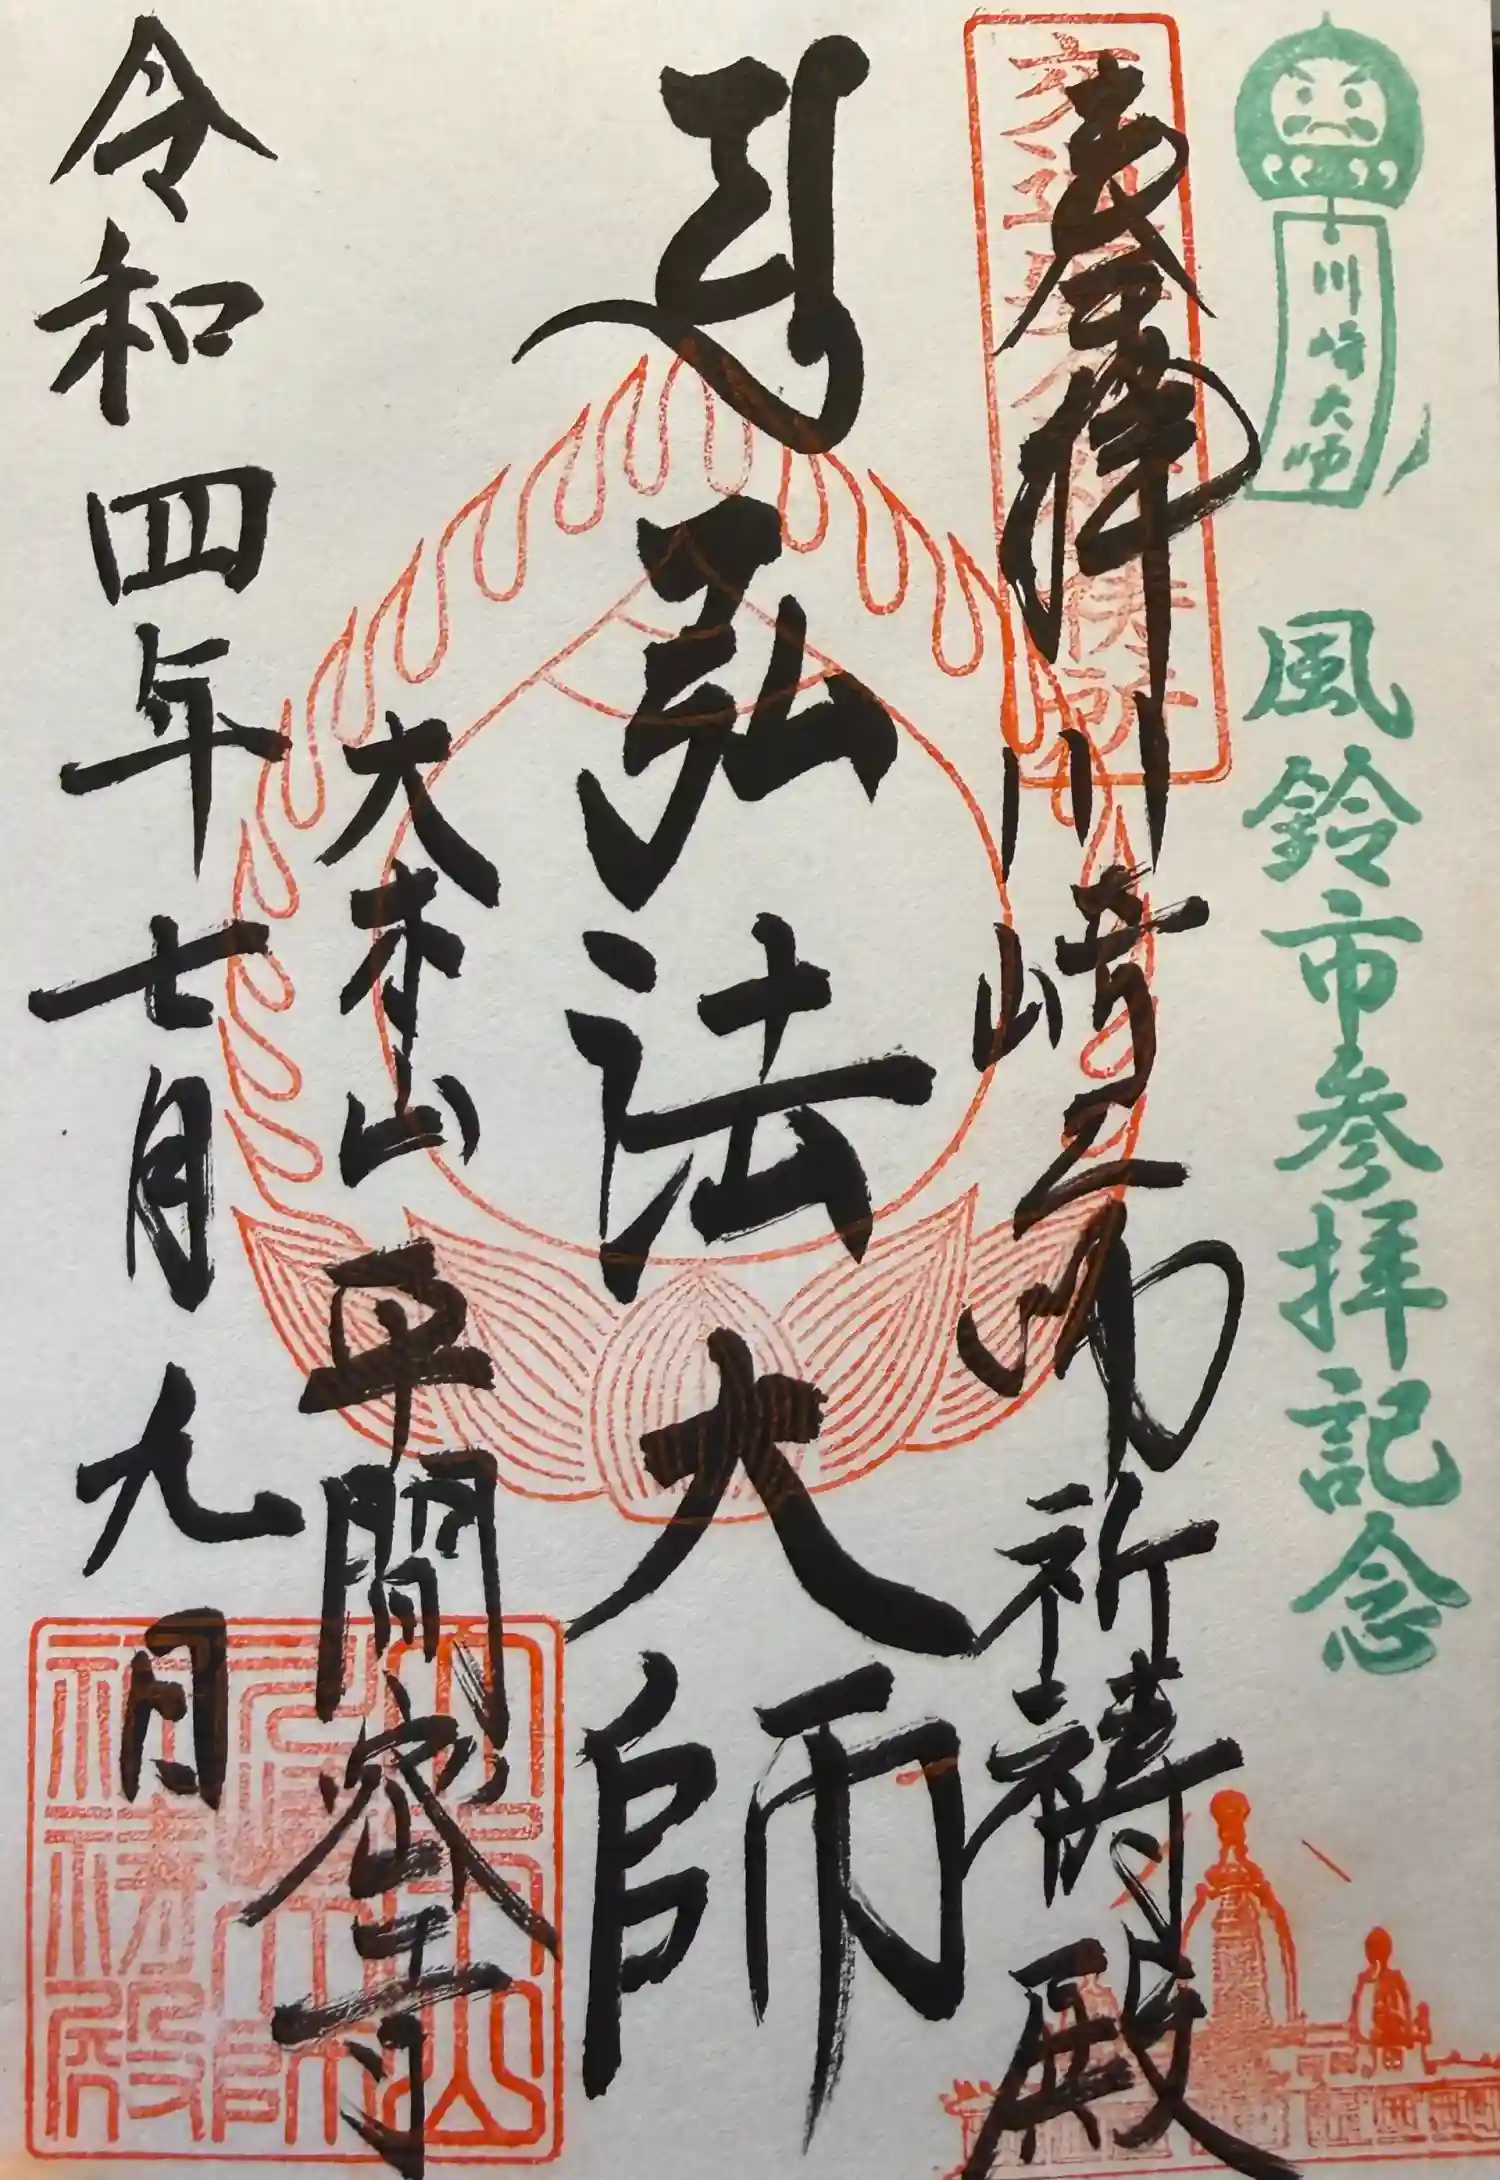 川崎大師
風鈴市参拝記念
奉拝
川崎大師 祈祷殿
交通安全祈祷所
弘法大師
大本山 平間寺
令和四年七月九日